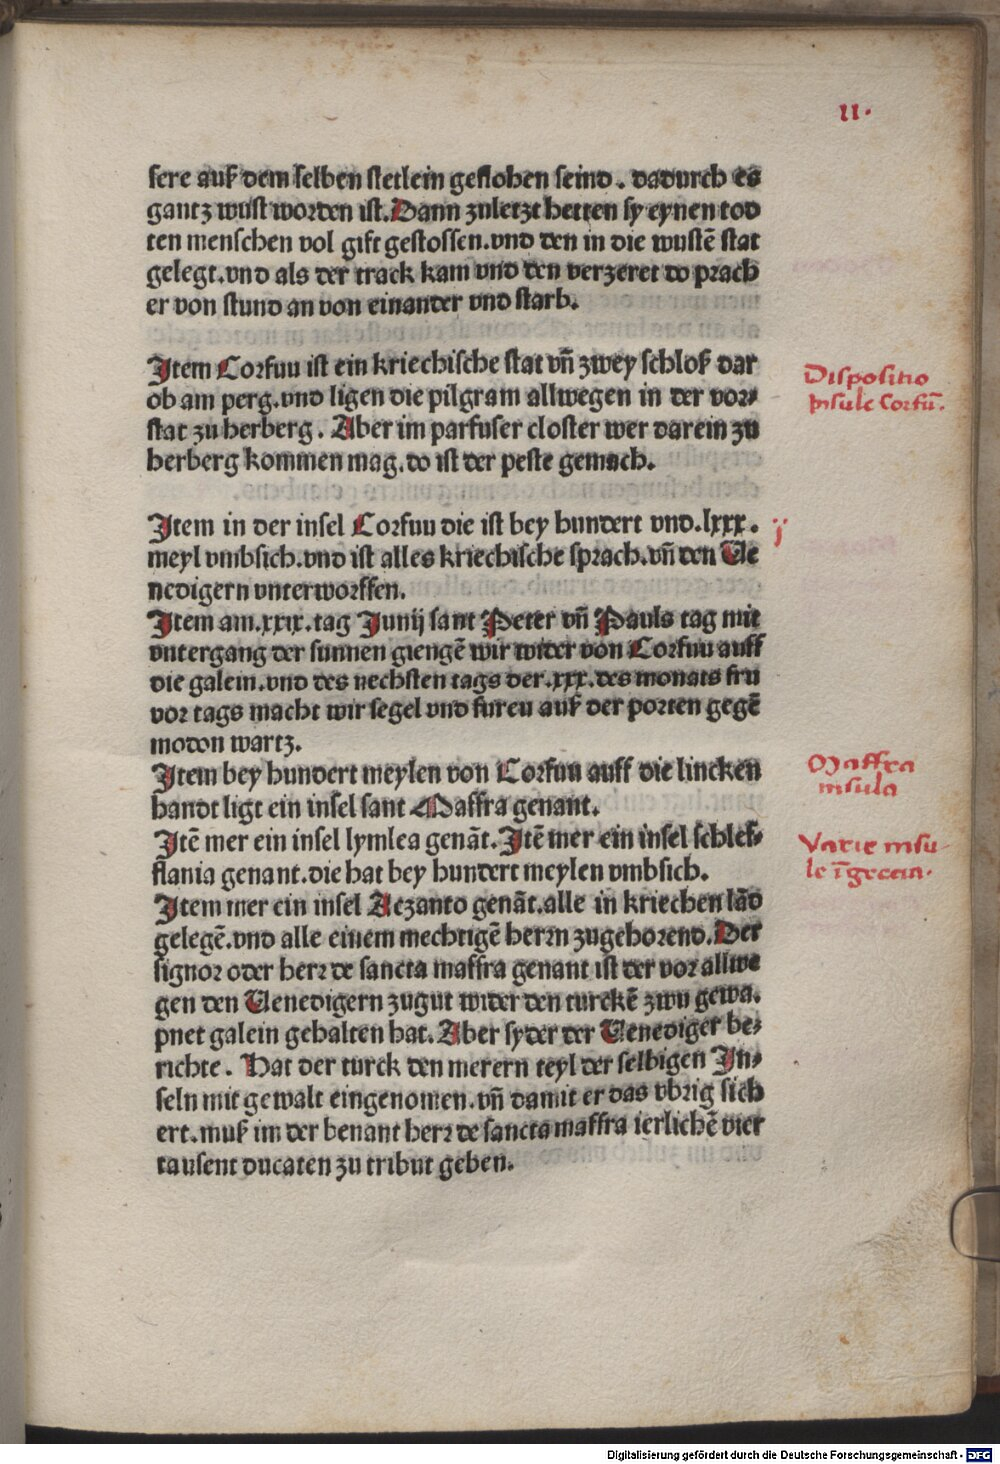 11.
sere auß dem selben stetlein geflohen seind. dadurch es
gantz wust worden ist. Dann zuletzt hetten sy eynen tod
ten menschen vol gift gestossen. vnd den in die wustē stat
gelegt. vnd als der track kam vnd den verzeret do prach
er von stund an von einander vnd starb.
Item Corfuu ist ein kriechische stat vn̄ zwey schloß dar
ob am perg. vnd ligen die pilgram allwegen in der vor⸗
stat zu herberg. Aber im parfuser closter wer darein zu
herberg kommen mag. do ist der peste gemach.
Dispositio
Insule Corfu̅.
Item in der insel Corfuu die ist bey hundert vnd. lxxx.
meyl vmbsich. vnd ist alles kriechische sprach. vn̄ den Ve
nedigern vnterworffen.
Item am. xxix. tag Junij sant Peter vn̄ Pauls tag mit
vntergang der sunnen giengē wir wider von Corfuu auff
die galein. vnd des nechsten tags der. xxx. des monats fru
vor tags macht wir segel vnd furen auß der porten gegē
modon wartz.
Item bey hundert meylen von Corfuu auff die lincken
handt ligt ein insel sant Maffra genant.
Maffra
insula
Itē mer ein insel lymlea genāt. Itē mer ein insel schles⸗
flania genant. die hat bey hundert meylen vmbsich.
Varie insu
le ī grecia.
Item mer ein insel Aezanto genāt. alle in kriechen lād
gelegē. vnd alle einem mechtigē herrn zugehorend. Der
signor oder herr de sancta maffra genant ist der vor allwe
gen den Venedigern zugut wider den turckē zwu gewa.
pnet galein gehalten hat. Aber syder der Venediger be⸗
richte. Hat der turck den merern teyl der selbigen In⸗
seln mit gewalt eingenomen. vn̄ damit er das vbrig sich
ert. muß im der benant herr de sancta maffra ierlichē vier
tausent ducaten zu tribut geben.
Digitalisierung gefördert durch die Deutsche Forschungsgemeinschaft - DFG